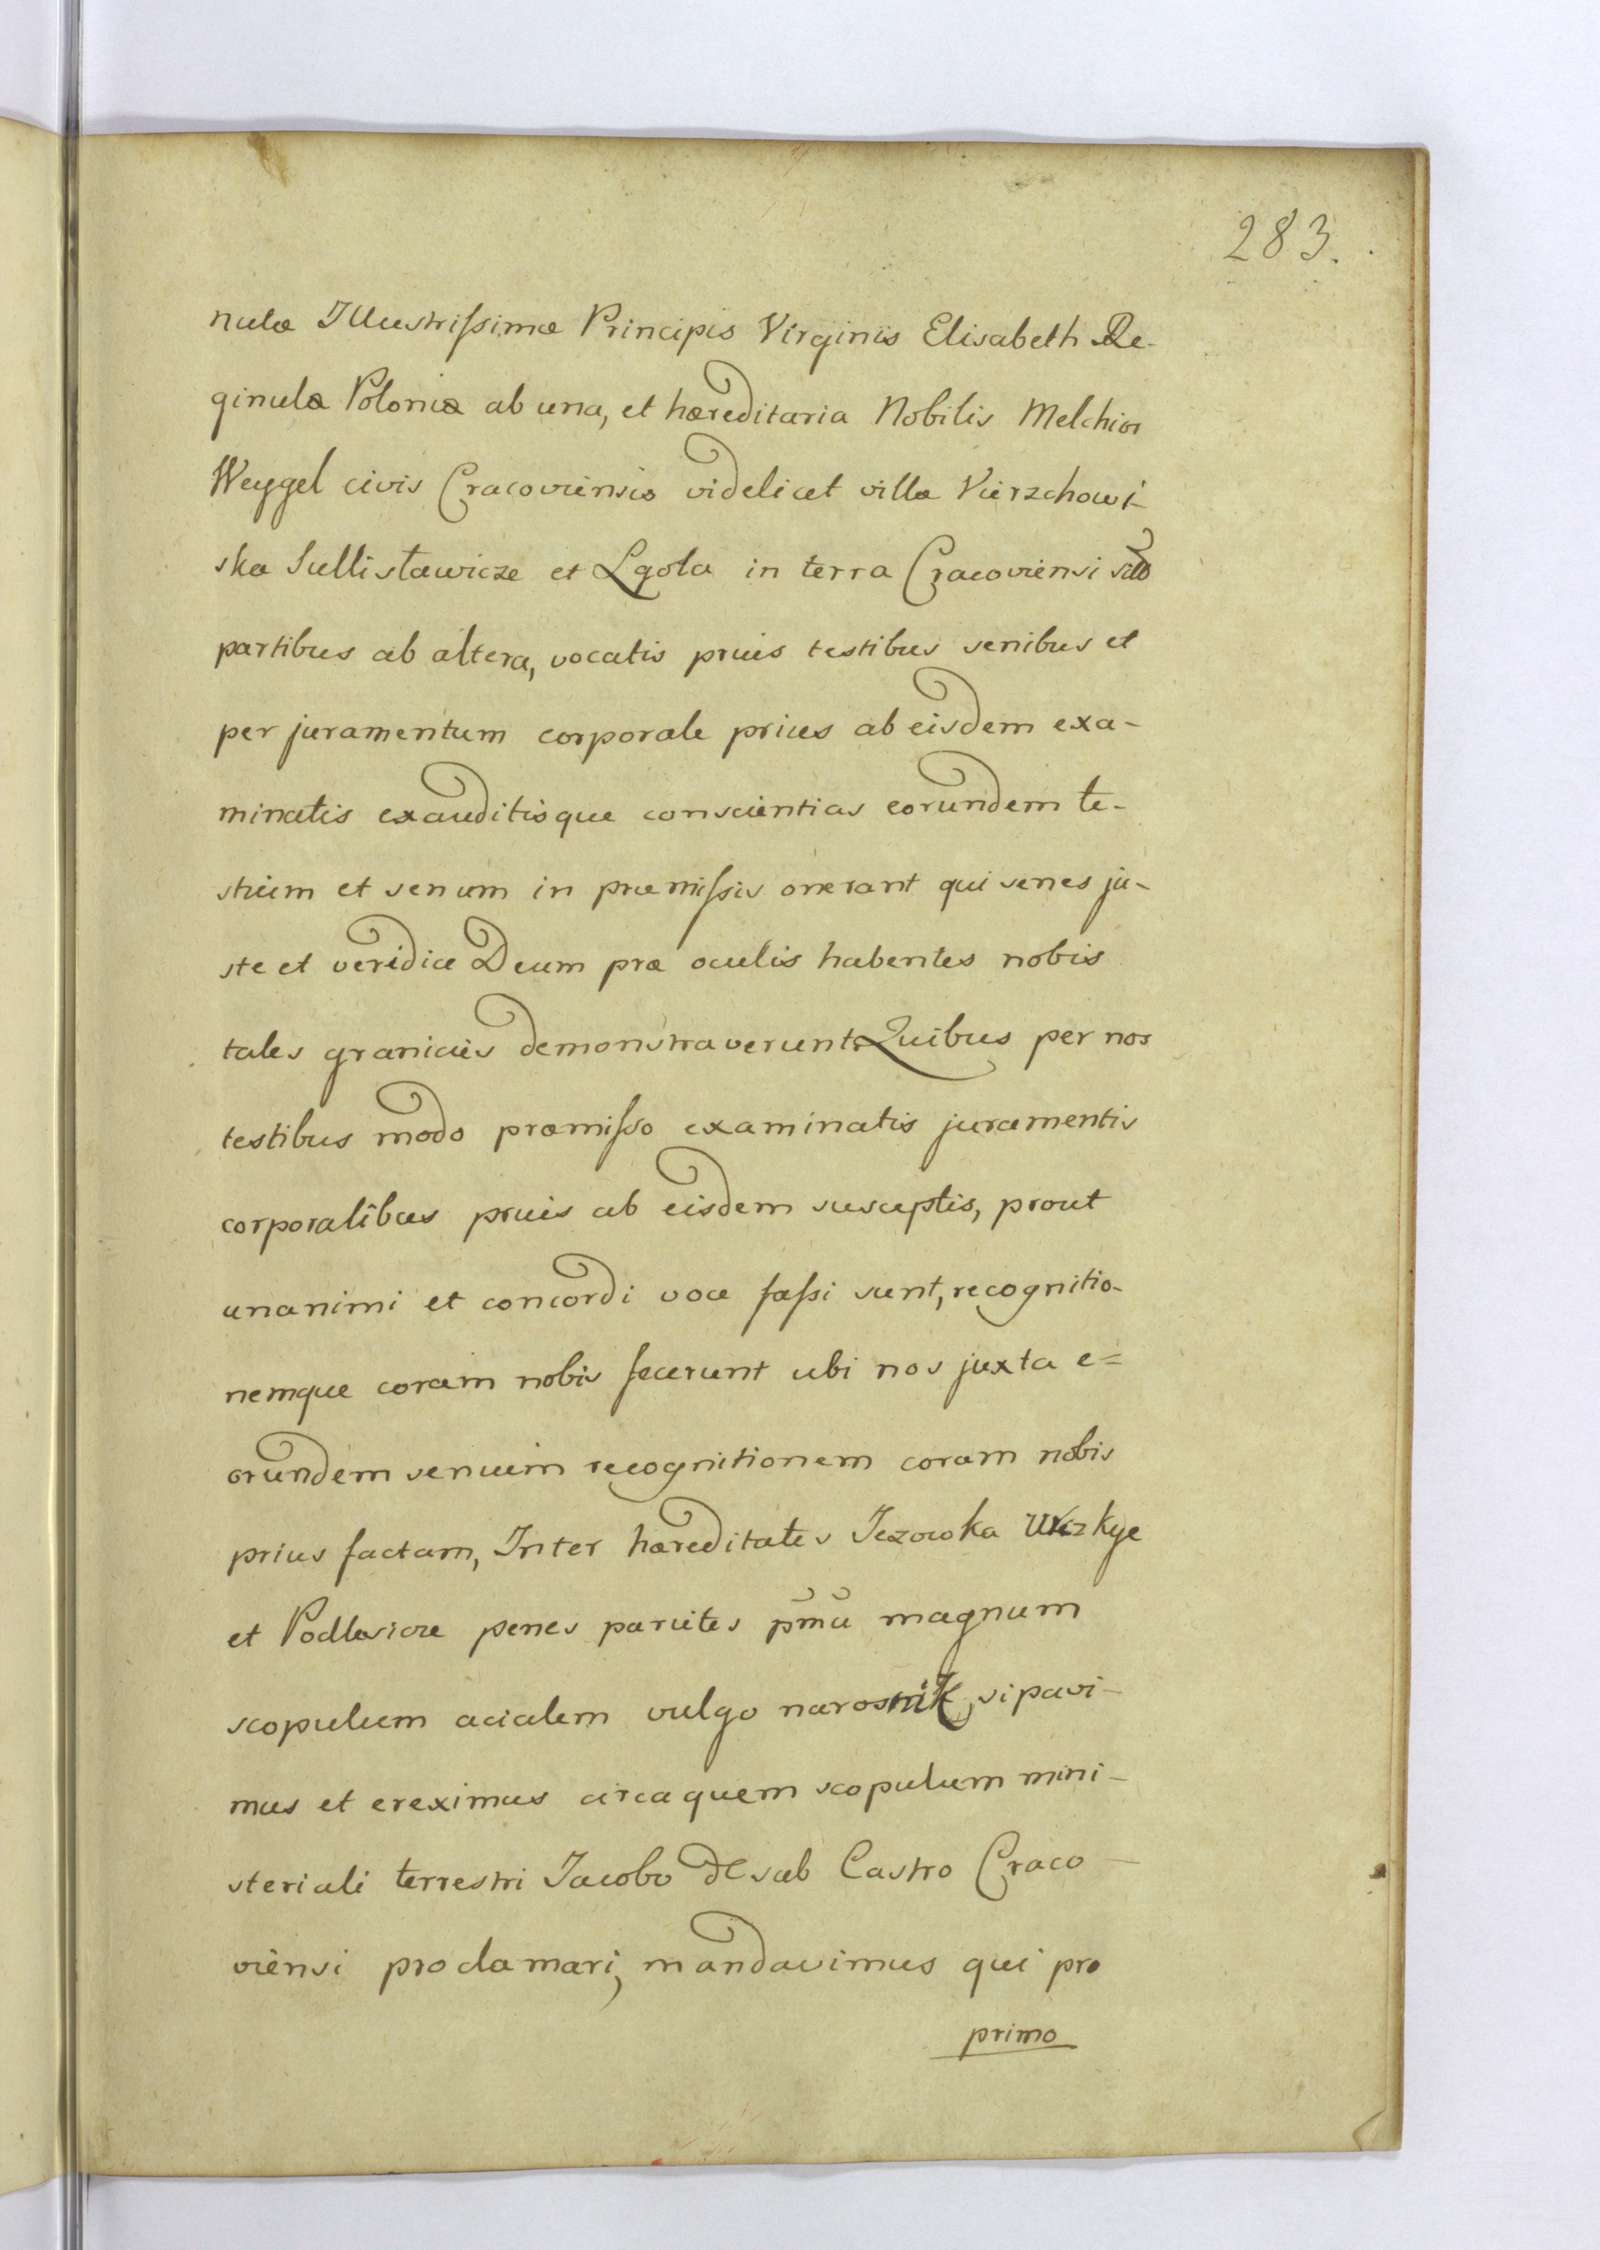 283.
nulæ Illustrissimæ Principis Virginis Elisabeth Re-
ginulæ Poloniæ ab una, et hæreditaria Nobilis Melchior
Weygel civis Cracoviensis videlicet villæ Vierzchowi-
ska Sullisławicze et Lgota in terra Cracoviensi
partibus ab altera, vocatis prius testibus senibus et
per juramentum corporale prius ab eisdem exa-
minatis exauditisque conscientias eorundem te-
stium et senum in præmissis onerant qui senes ju-
ste et veridice Deum præ oculis habentes nobis
tales granicies demonstraverunt. Quibus per nos
testibus modo præmisso examinatis juramentis
corporalibus prius ab eisdem susceptis, prout
unanimi et concordi voce fassi sunt, recognitio-
nemque coram nobis fecerunt ubi nos juxta e=
orundem senuum recognitionem coram nobis
prius factam, Inter hæreditates Jezowka
et Podlesicze penes parietes pm̄ū magnum
scopulum acialem vulgo narosnik, sipavi-
mus et ereximus circa quem scopulum mini-
steriali terrestri Jacobo de sub Castro Craco-
viensi proclamari, mandavimus qui pro
primo